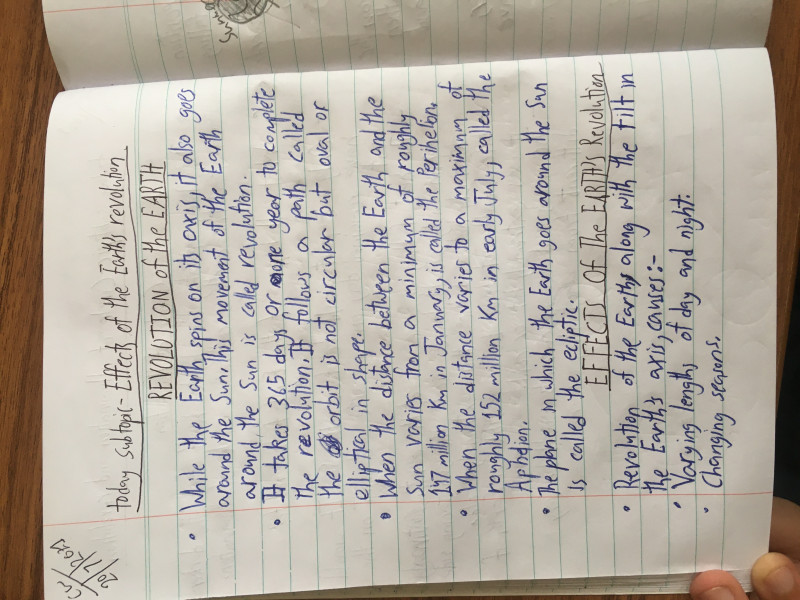 today Subtopic - Effects of the Earth's revolution
REVOLUTION of the EARTH
• While the Earth spins on its axis, it also goes
around the Sun. This movement of the Earth
around the Sun is called revolution.
• It takes 365 days or one year to complete
the revolution. It follows a path called
the orbit is not circular but oval or
elliptical in shape.
• When the distance between the Earth and the
Sun varies from a minimum of roughly
147 million Km in January, is called the Perihelon.
• When the distance varies to a maximum of
roughly 152 million Km in early July, called the
Aphelion.
• The plane in which the Earth goes around the Sun
is called the ecliptic.
EFFECTS OF The EARTH'S Revolution
• Revolution of the Earths along with the tilt in
the Earth's axis, causes:-
• Varying lengths of day and night.
• Changing seasons.